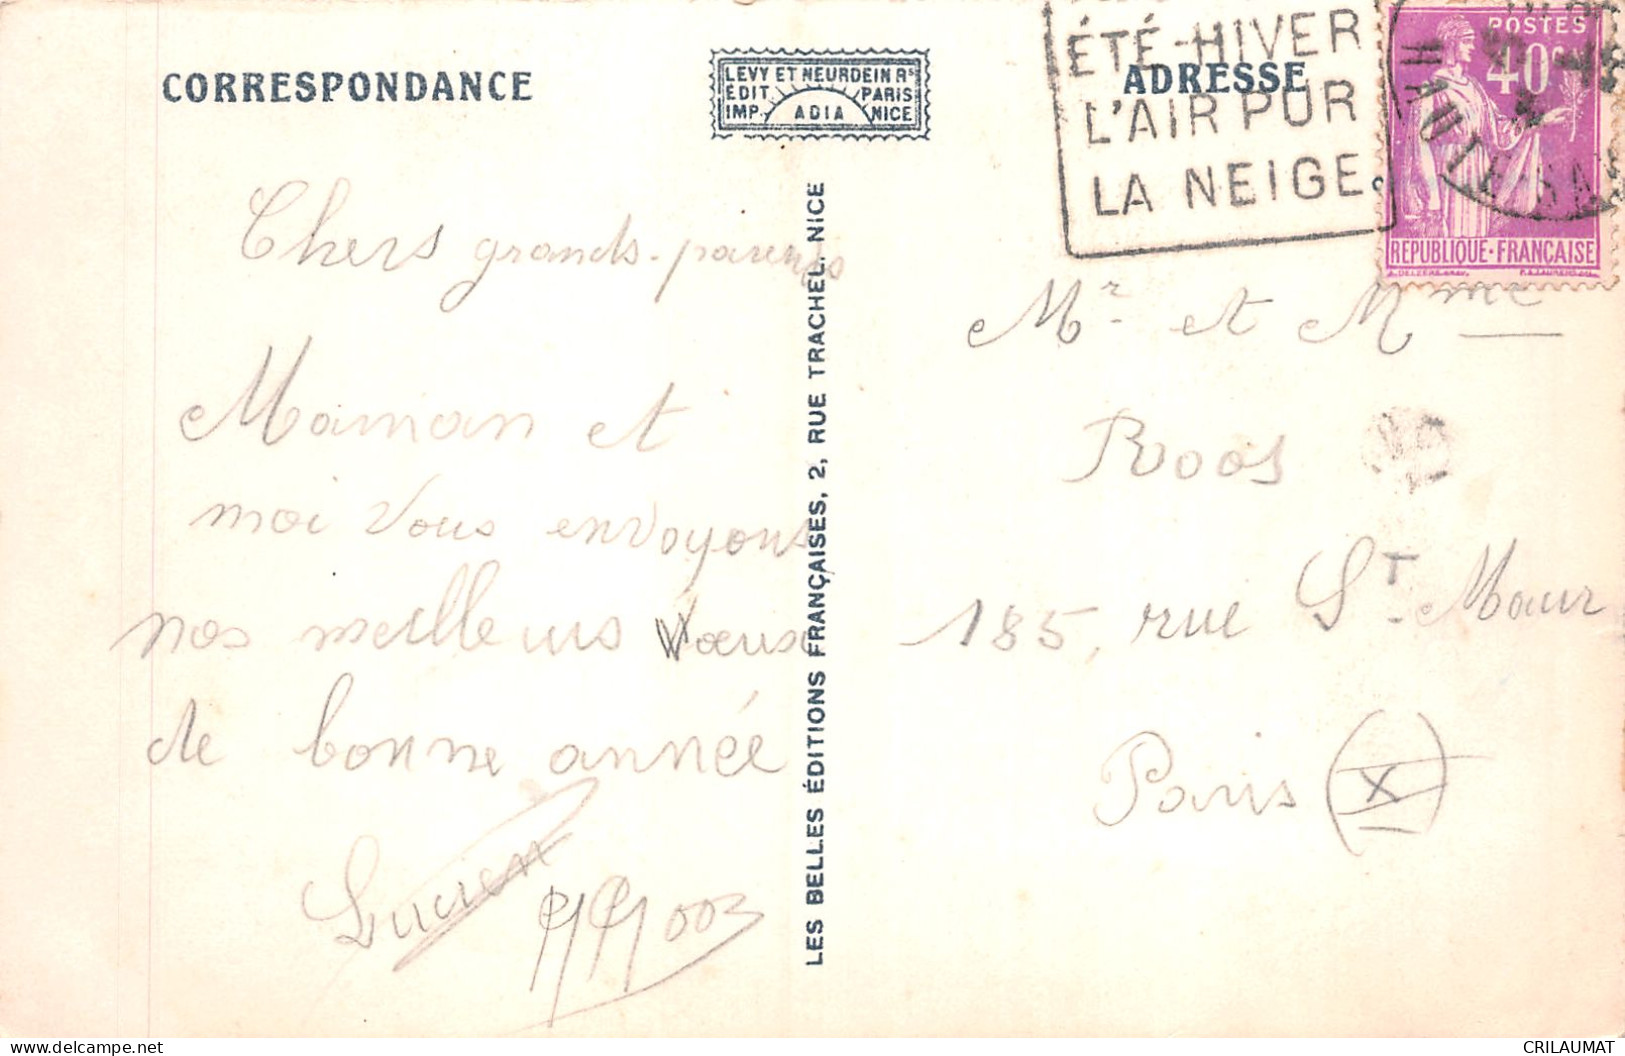 CORRESPONDANCE
LEVY ET NEURDEIN RS
EDIT. PARIS
IMP. ADIA NICE
ÉTÉ-HIVER
L'AIR PUR
LA NEIGE
ADRESSE
POSTES
40c
HAUTE-SA
REPUBLIQUE·FRANÇAISE
Chers grands-parents
Maman et
moi vous envoyons
nos meilleurs Voeux
de bonne année
Lucien
LES BELLES ÉDITIONS FRANÇAISES, 2, RUE TRACHEL. NICE
Mr et Mme
Roos
185, rue St-Maur
Paris (X)
CRILAUMAT
delcampe.net